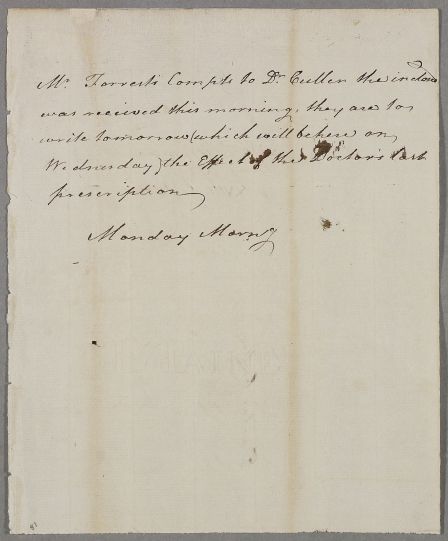 Mr. Forrests Compts to Dr Cullen the inclos
was received this morning, they are to
write tomorrow (which will be here on
Wednesday) the Effect of the Doctor's last
prescription
Monday Morng